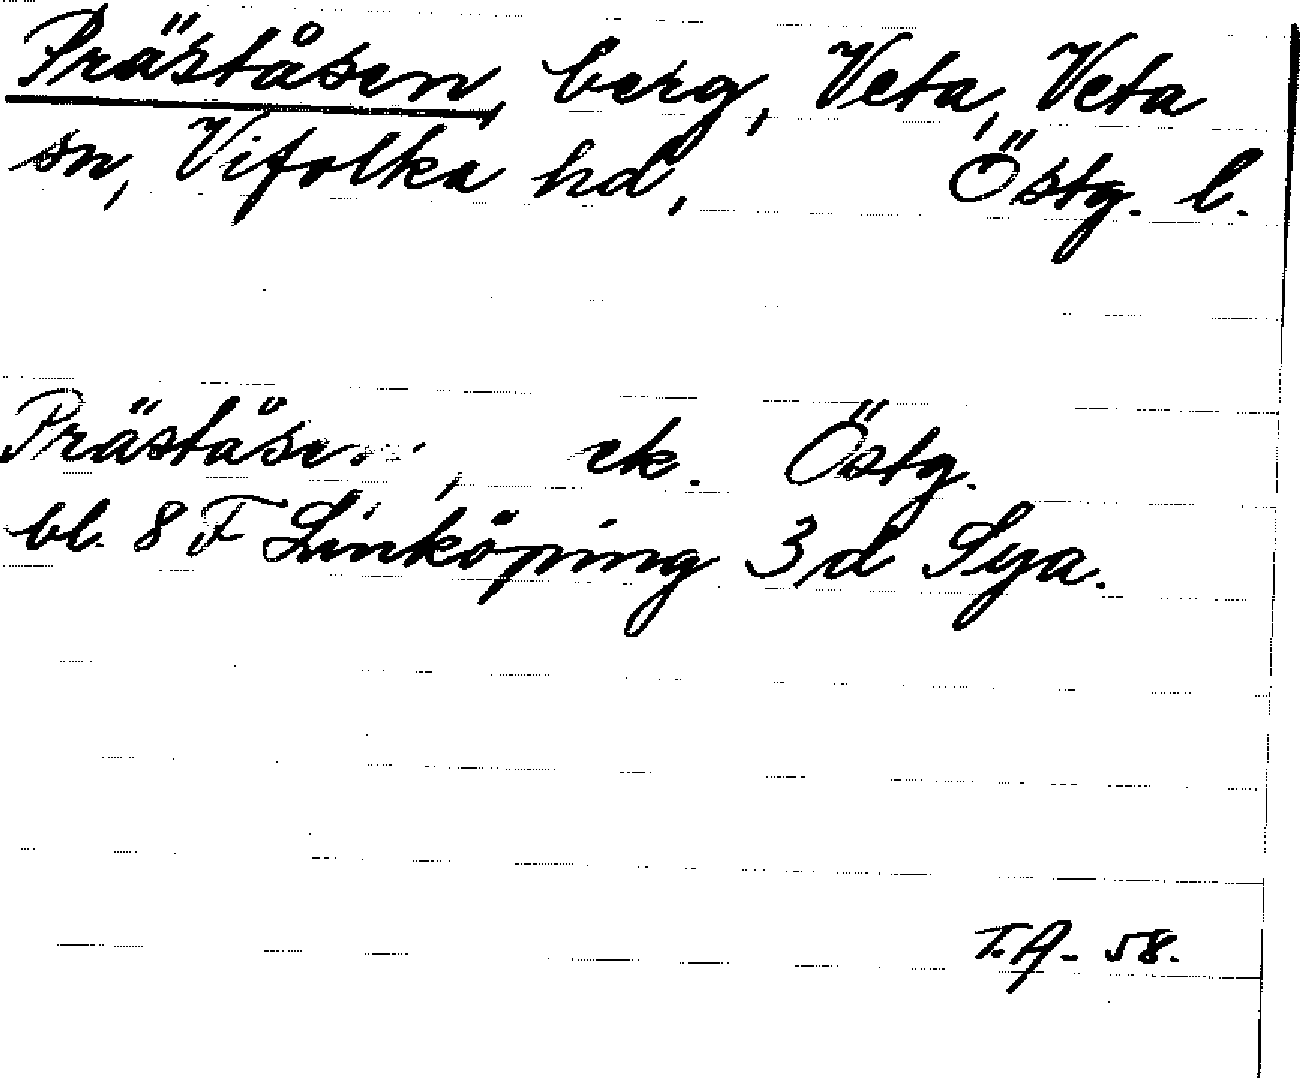 Präståsen, berg, Veta, Veta
sn, Vifolka hd, Östg. l.
Präståsen, ek. Östg.
bl. 8 F Linköping 3d Sya.
T.A- 58.